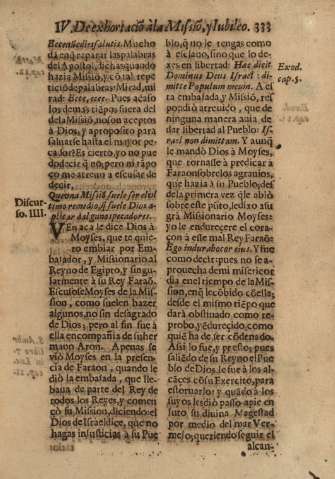 IV. De exhortaciõ à la Missiõ, y Iubileo. 333
Ecce nũc dies salutis. Mucho
dà en q̃ reparar las palabras
del Apostol, diga
hazia Missiõ, y cõ tal repe-
ticiõ de palabras: Mirad, mi-
rad: Ecce, ecce. Pues acaso
los demàs tiẽpos fuera del
de la Missiõ, no son aceptos
à Dios, y à proposito para
salvarse hasta el mayor pe-
cador? Es cierto, yo no pue-
do dezir q̃ no, pero ni tãpo
co me atreuo a escusar de
dezir,
Que vna Missiõ suele ser el vl-
timo remedio, q̃ suele Dios a-
plicar à algunos pecadores.
Discur-
so. IIII.
VEn aca le dize Dios à
Moyses, que te quie-
ro embiar por Em-
baxador, y Missionario al
Reyno de Egipto, y singu-
larmente à su Rey Faraõ.
Escusose Moyses de la Mis-
sion, como suelen hazer
algunos, no sin desagrado
de Dios; pero al fin fue à
ella en compañia de su her
mano Aron. Apenas se
viò Moyses en la presencia
de Faraon, quando le
diò la embaxada, que lle-
baua de parte del Rey de
todos los Reyes, y comen-
çò su Mission, diciendo: el
Dios de Israel dice, que no
hagas injusticias à su Pue
blo, q̃ no le tengas como
à esclauo, sino que lo de-
xes en libertad: Hæc dicit
Dominus Deus Israel: di-
mitte Populum meum. A es
ta embaxada, y Missiõ, res
pondiò arrestado, que de
ninguna manera auia de
dar libertad al Pueblo: Is-
rael non dimittam. Y aunq̃
le mandò Dios à Moyses,
que tornasse à predicar à
Faraon sobre los agrauios,
que hazia à su Pueblo, des
de la primera vez q̃ le abiò
sobre este pũto, le dixo assi
al gra Missionario Moyses:
yo le endurecere el cora-
çon à este mal Rey Faraõ:
Ego indurabo cor eius. Y fue
como decir: pues no se a-
prouecha de mi misericor
dia en el tiempo de la Mis-
sion, mẽ le cobido cõ ella;
desde el mismo tiẽpo que
darà obstinado como re-
probo, y ẽdurecido, como
quiẽ ha de ser cõdenado.
Assi lo fue, y presto, pues
saliẽdo de su Reyno el Pue
blo de Dios, le fue à los al-
cances cõ su Exercito, para
estorbarlo: y quãdo à los
suyos les diò passo apie en
juto su diuina Magestad
por medio del mar Ver-
mejo, queriendo seguir el
alcan-
Exod.
cap. 5.